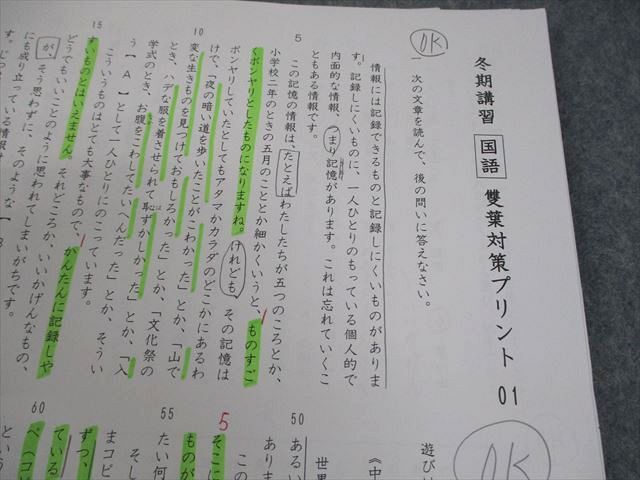 冬期講習 国語 雙葉対策プリント 01
OK
一 次の文章を読んで、後の問いに答えなさい。
情報には記録できるものと記録しにくいものがありま
す。記録しにくいものに、一人ひとりのもっている個人的で
内面的な情報、つまり記憶があります。これは忘れていくこ
ともある情報です。
5
この記憶の情報は、たとえばわたしたちが五つのころとか、
小学校二年のときの五月のこととか細かくいうと、ものすご
くボンヤリとしたものになりますね。けれども、その記憶は
ボンヤリしていたとしてもアタマかカラダのどこかにあるわ
けで、「夜の暗い道を歩いたことがこわかった」とか、「山で
10
変な生きものを見つけておもしろかった」とか、「文化祭の
とき、ハデな服を着させられて恥ずかしかった」とか、「入
学式のとき、お腹をこわしてたいへんだった」とか、そうい
う【 A 】として一人ひとりにのこっています。
こういうものはとても大事なもので、かんたんに記録しや
15
すいものとはいえません。それどころか、いいかげんなもの、
どうでもいいことのように思われてしまいがちです。
が、そう思わずに、そのような【 B
にも成り立っている情報
遊び
OK
《中
世界
50
あるい
ありま
この
5
そこに
ものが
たい何
55
そし
まコピ
ずつ、
ている
60
ペ（コピ
という